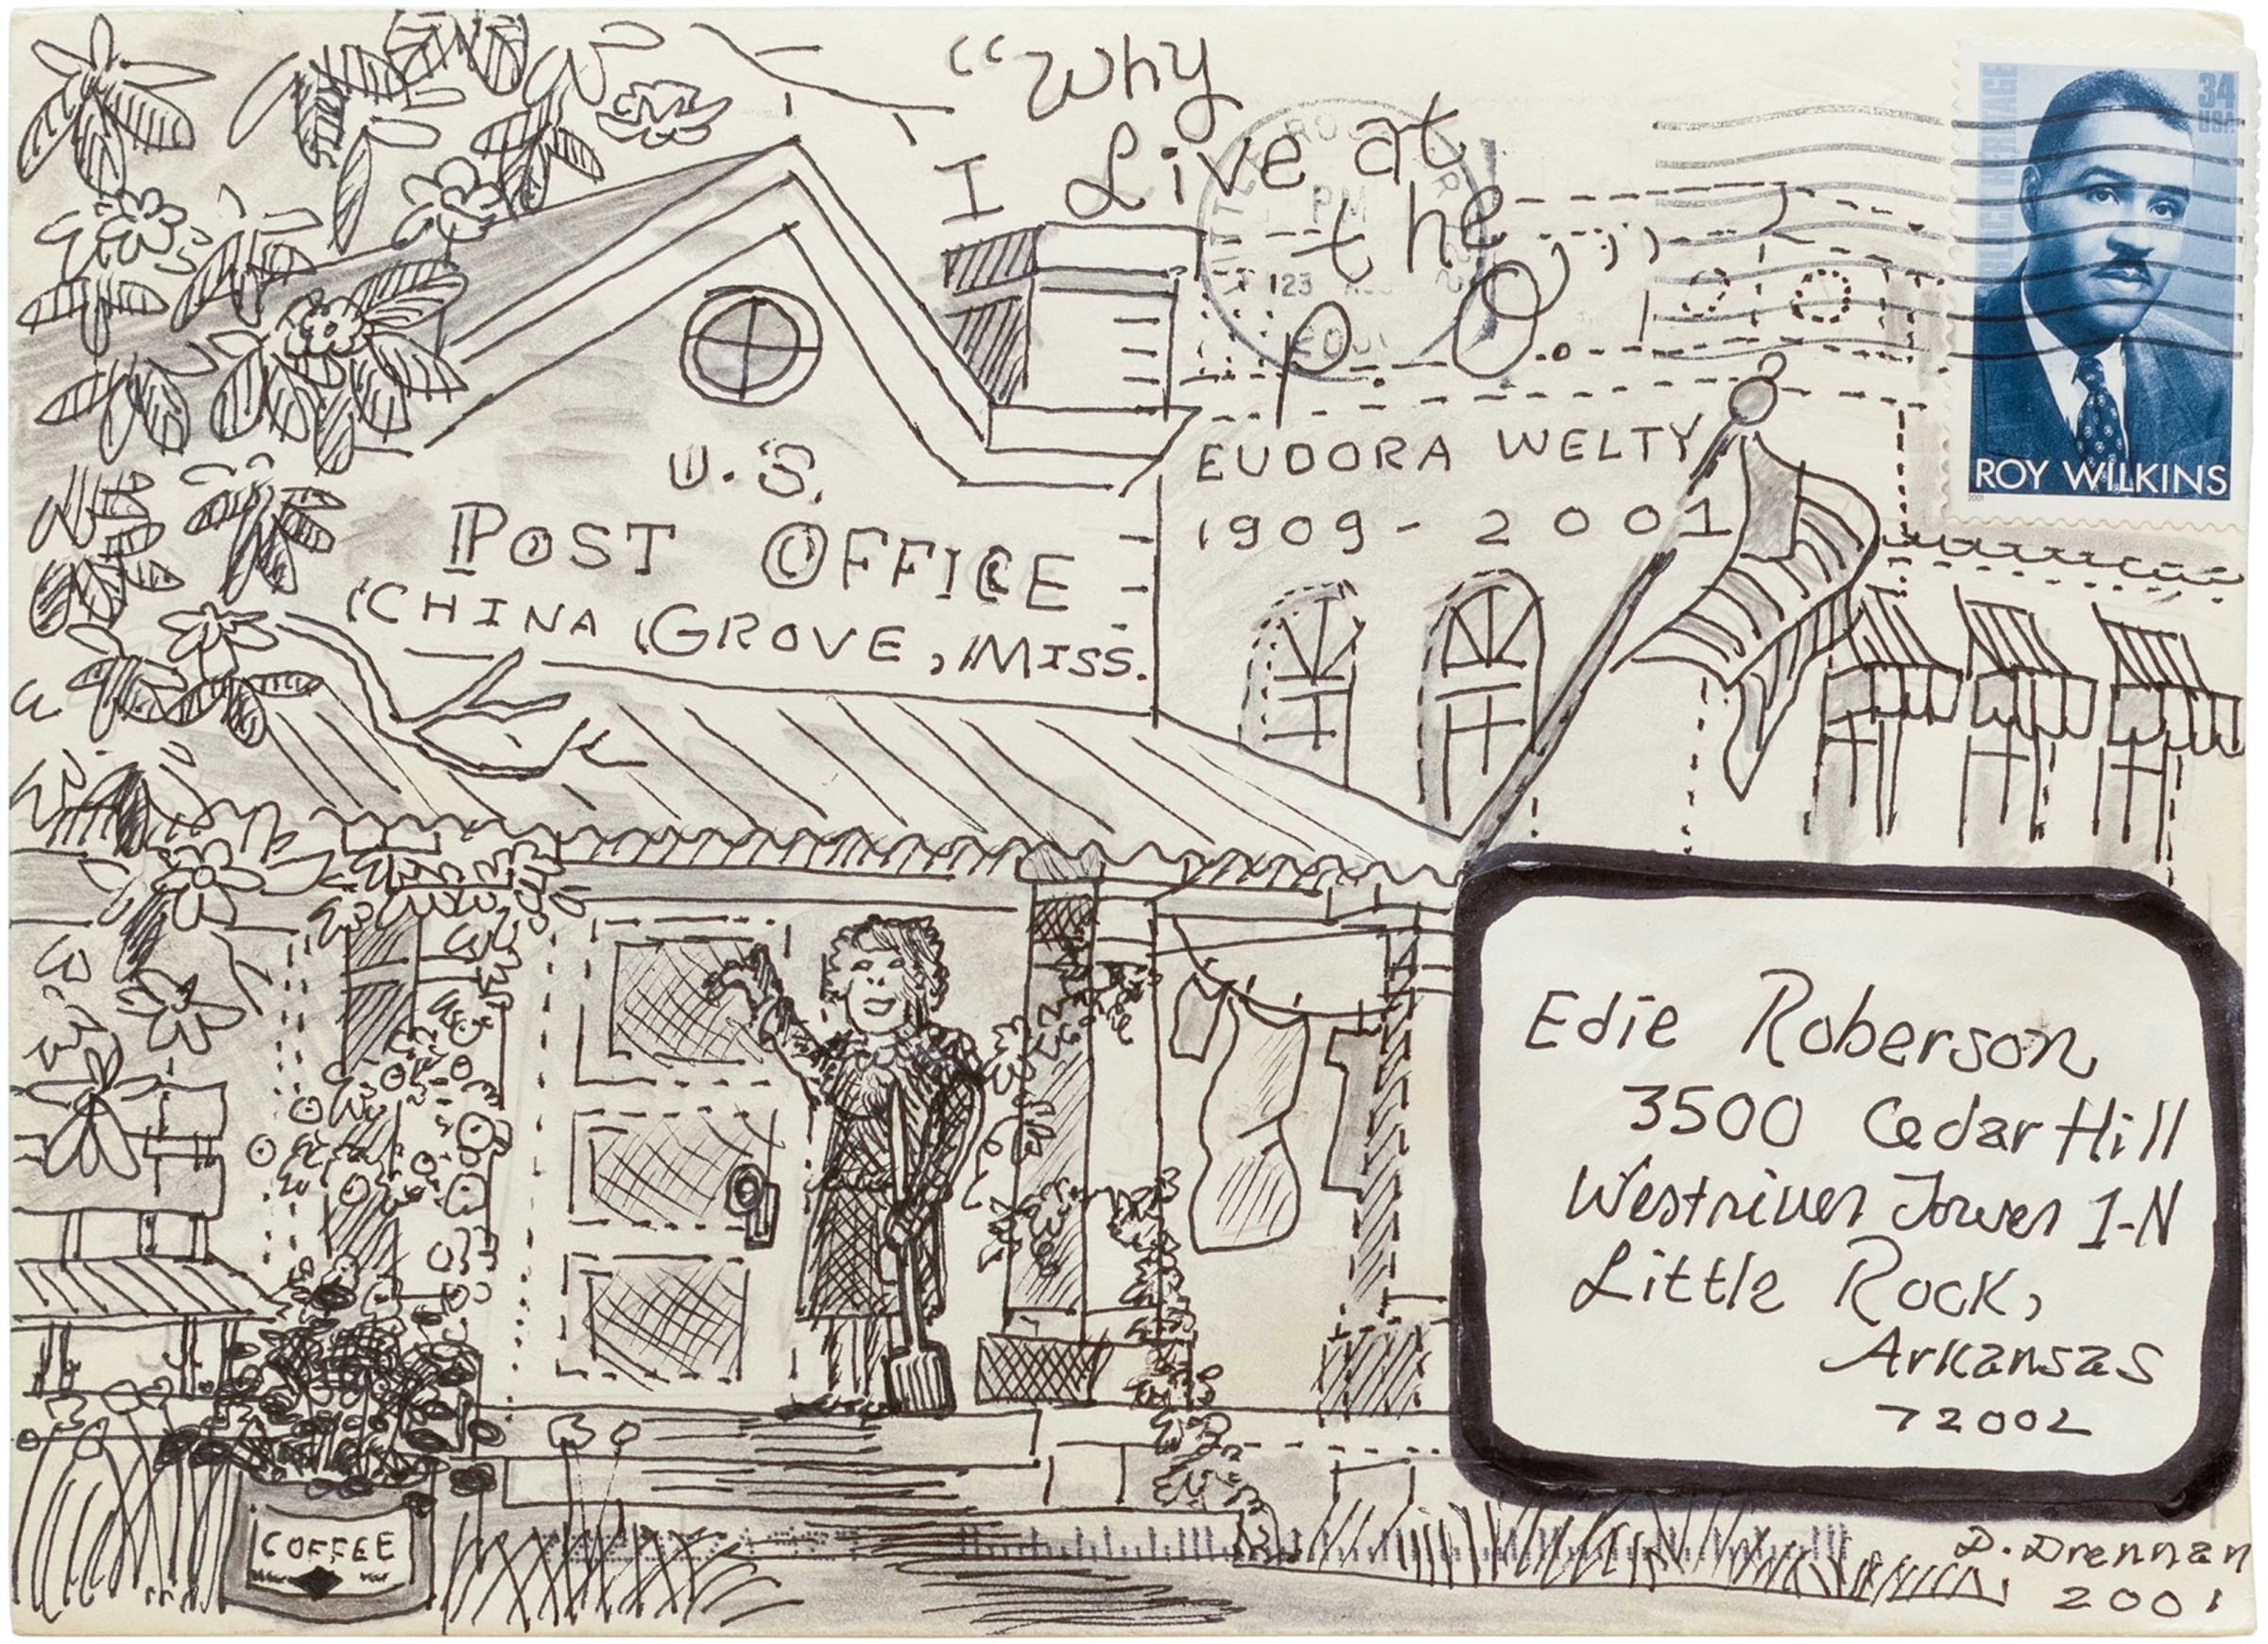 “Why
I Live at
the
P.O.
U.S.
POST OFFICE
CHINA GROVE, MISS.
EUDORA WELTY
1909 - 2001
34
USA
BLACK HERITAGE
ROY WILKINS
2001
PM
Edie Roberson
3500 Cedar Hill
Westriver Tower 1-N
Little Rock,
Arkansas
72002
COFFEE
D. Drennan
2001